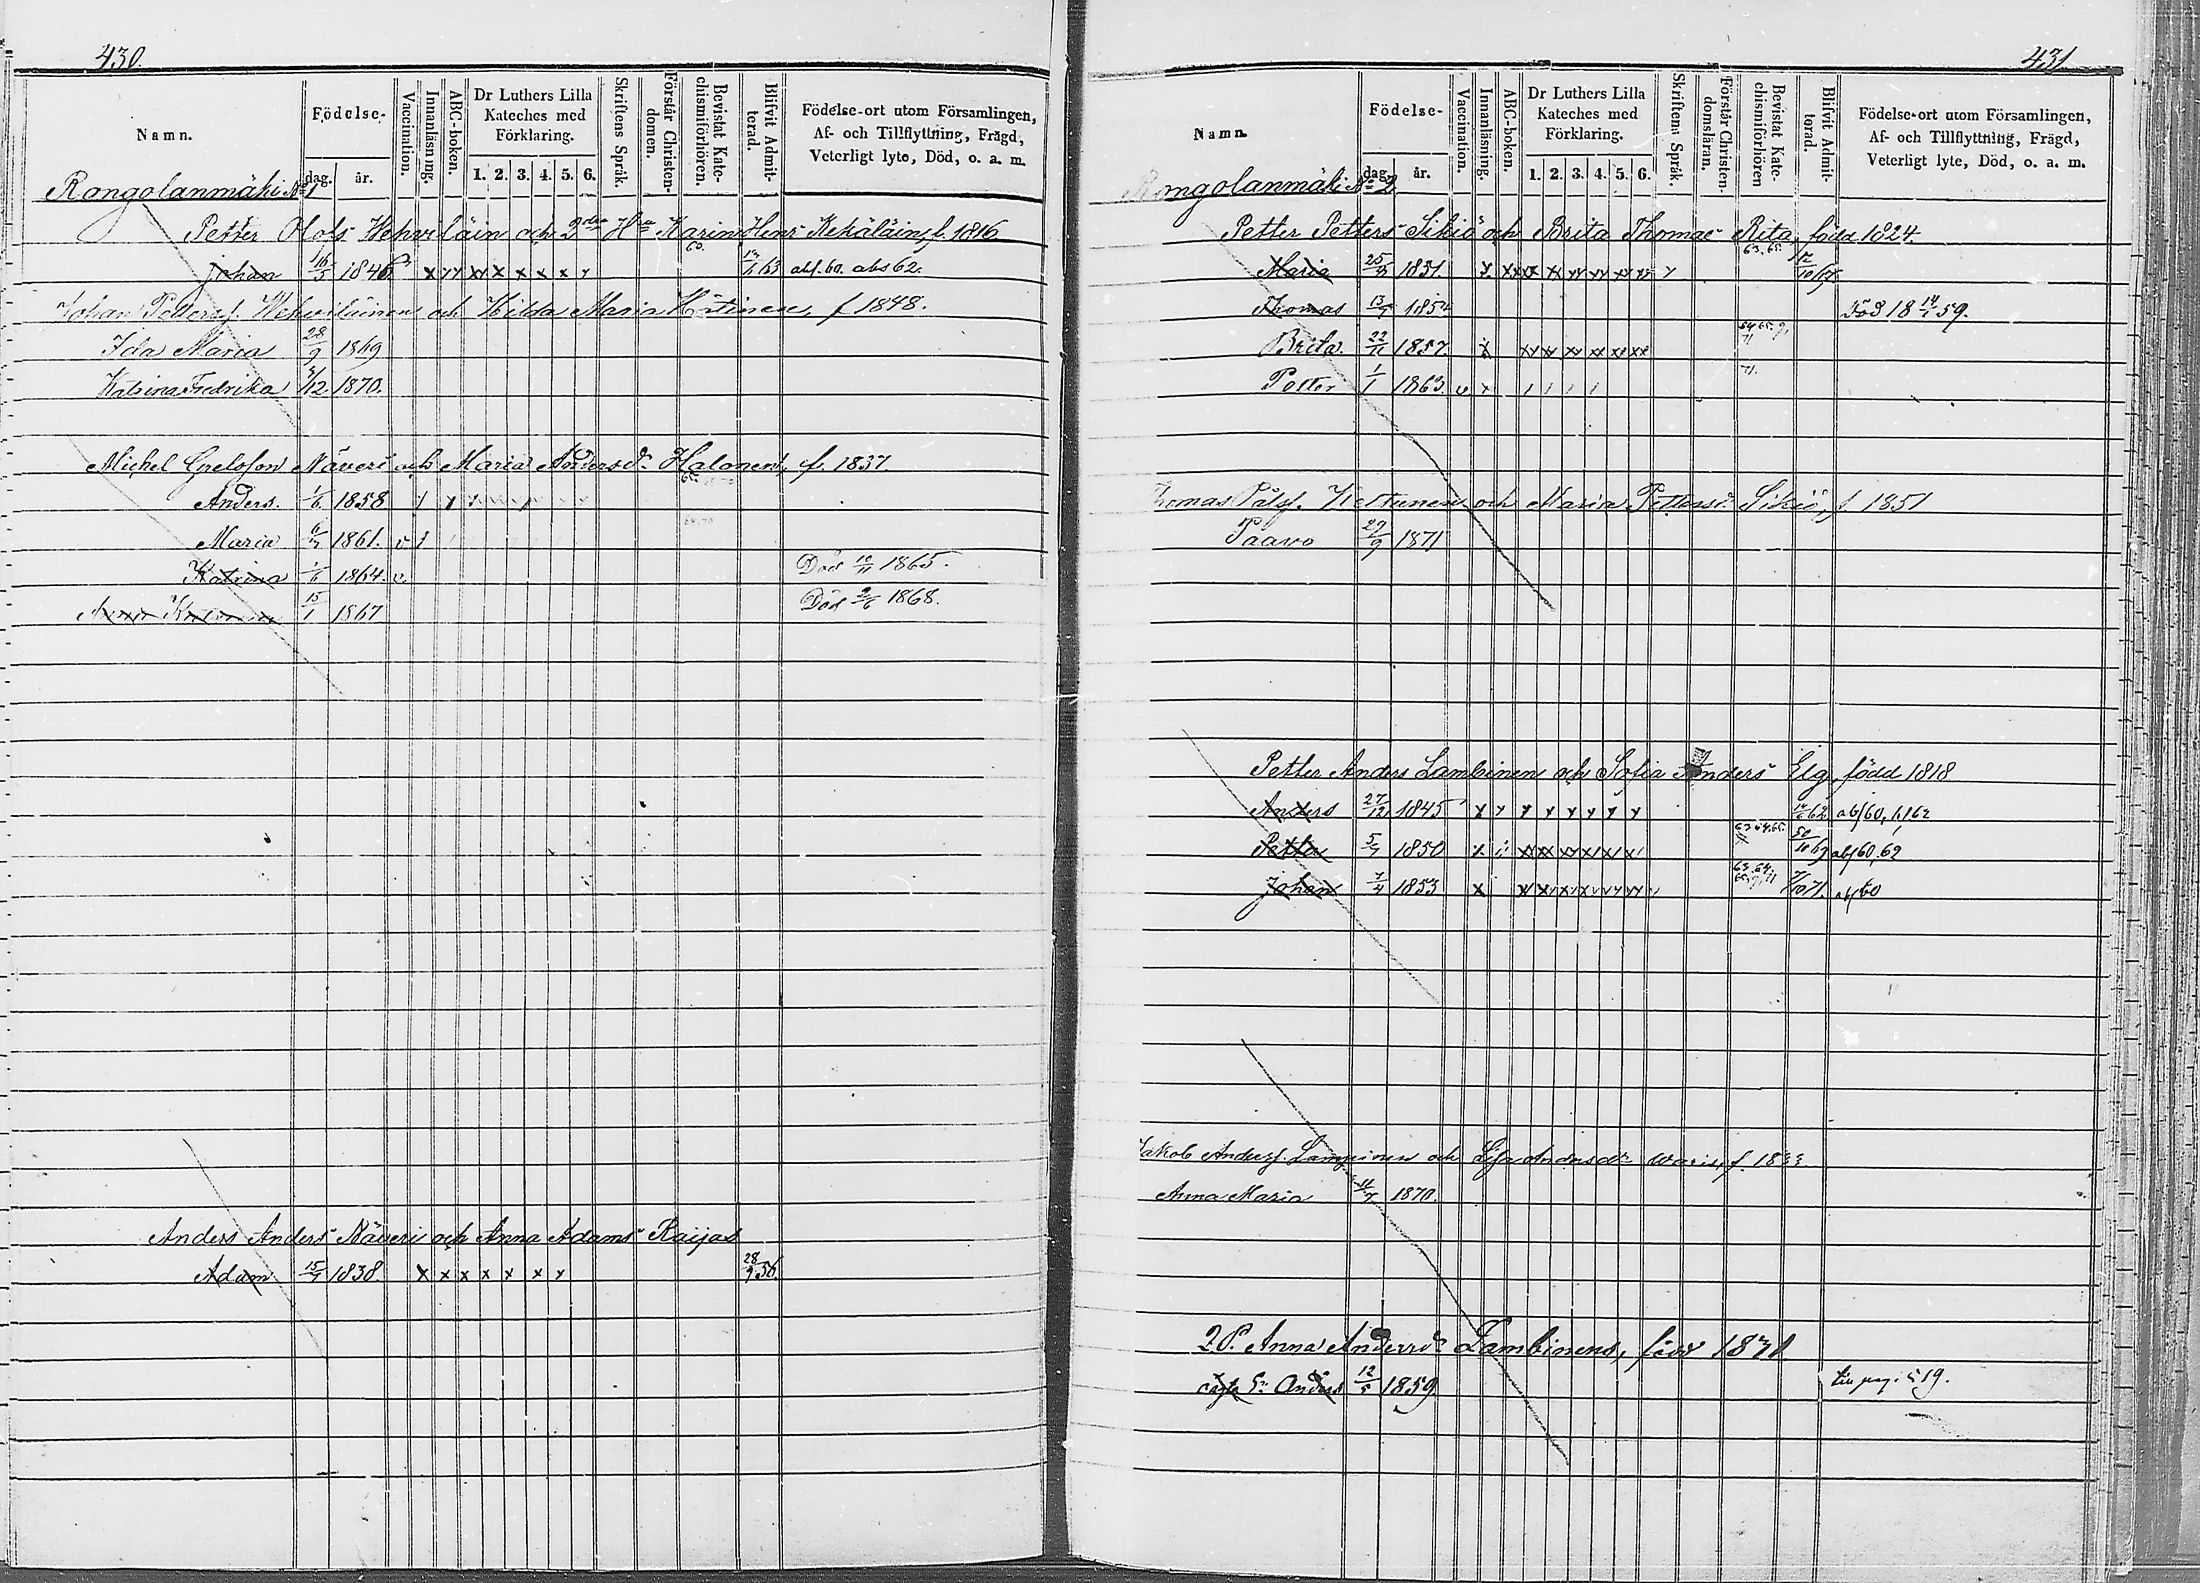 430.
Namn.
Födelse-
dag. år.
Vaccination.
Innanläsning.
ABC-boken.
Dr Luthers Lilla Kateches med Förklaring.
1. 2. 3. 4. 5. 6.
Skriftens Språk.
Förstår Christendomen.
Bevistat Katechismiförhören.
Blifvit Admitterad.
Födelse-ort utom Församlingen,
Af- och Tillflyttning, Frägd,
Veterligt lyte, Död, o. a. m.
Rongolanmäki No 1
Petter Olofs Wehviläin och 2dra Hu Karin Henr Kekäläin, f. 1816.
Johan 16/5 1846 x x x x x x x 63 abs. 60. abs 62.
Johan Peders. Wehviläinen och Hilda Maria f 1848.
Ida Maria 28/9 1869
Katrina Fredrika /12 1870.
Michel Näveri och Maria Andersdr Halonen, f. 1837.
Anders. 1/6 1858
Maria 1861.
Katrina 1/6 1864. v. Död 10/11 1865.
Anna Katrina 15/1 1867 Död 2/6 1868.
Anders Anders Näveri och Anna Adams Raijas
Adam 15/7 1838. x x x x x x x 28/9 56.
431
Namn.
Födelse-
dag. år.
Vaccination.
Innanläsning.
ABC-boken.
Dr Luthers Lilla Kateches med Förklaring.
1. 2. 3. 4. 5. 6.
Skriftens Språk.
Förstår Christendomsläran.
Bevistat Katechismiförhören
Blifvit Admitterad.
Födelse-ort utom Församlingen,
Af- och Tillflyttning, Frägd,
Veterligt lyte, Död, o. a. m.
Rongolanmäki No 2.
Petter Petters Sikiö och Brita Thomas Rita, född 1824.
Maria 1851. 63. 65. 67.
Thomas 13/ 185 Död 18 14/ 59.
Brita. 22/11 1857. 71
Petter 1/1 1863. 71.
Thomas Pålss. Kettunen och Maria Pettersdr. Sikiö, f 1851
Paavo 29/9 1871
Petter Anders Lambinen och Sofia Anders Elg, född 1818
Anders 27/12 1845 x x x x x x x x 62 abs 60,
Petter 5/7 1850 63 64. 65. 30/10 69 abs 60, 62
Johan 7/4 1853 63. 64. 71. abs 60
Jakob Anderss. Lampinen och Andersdr f. 18
Anna Maria 1870.
Anna Andersdr Lambinens, född
Sn Anders 12/5 1859. till pag: